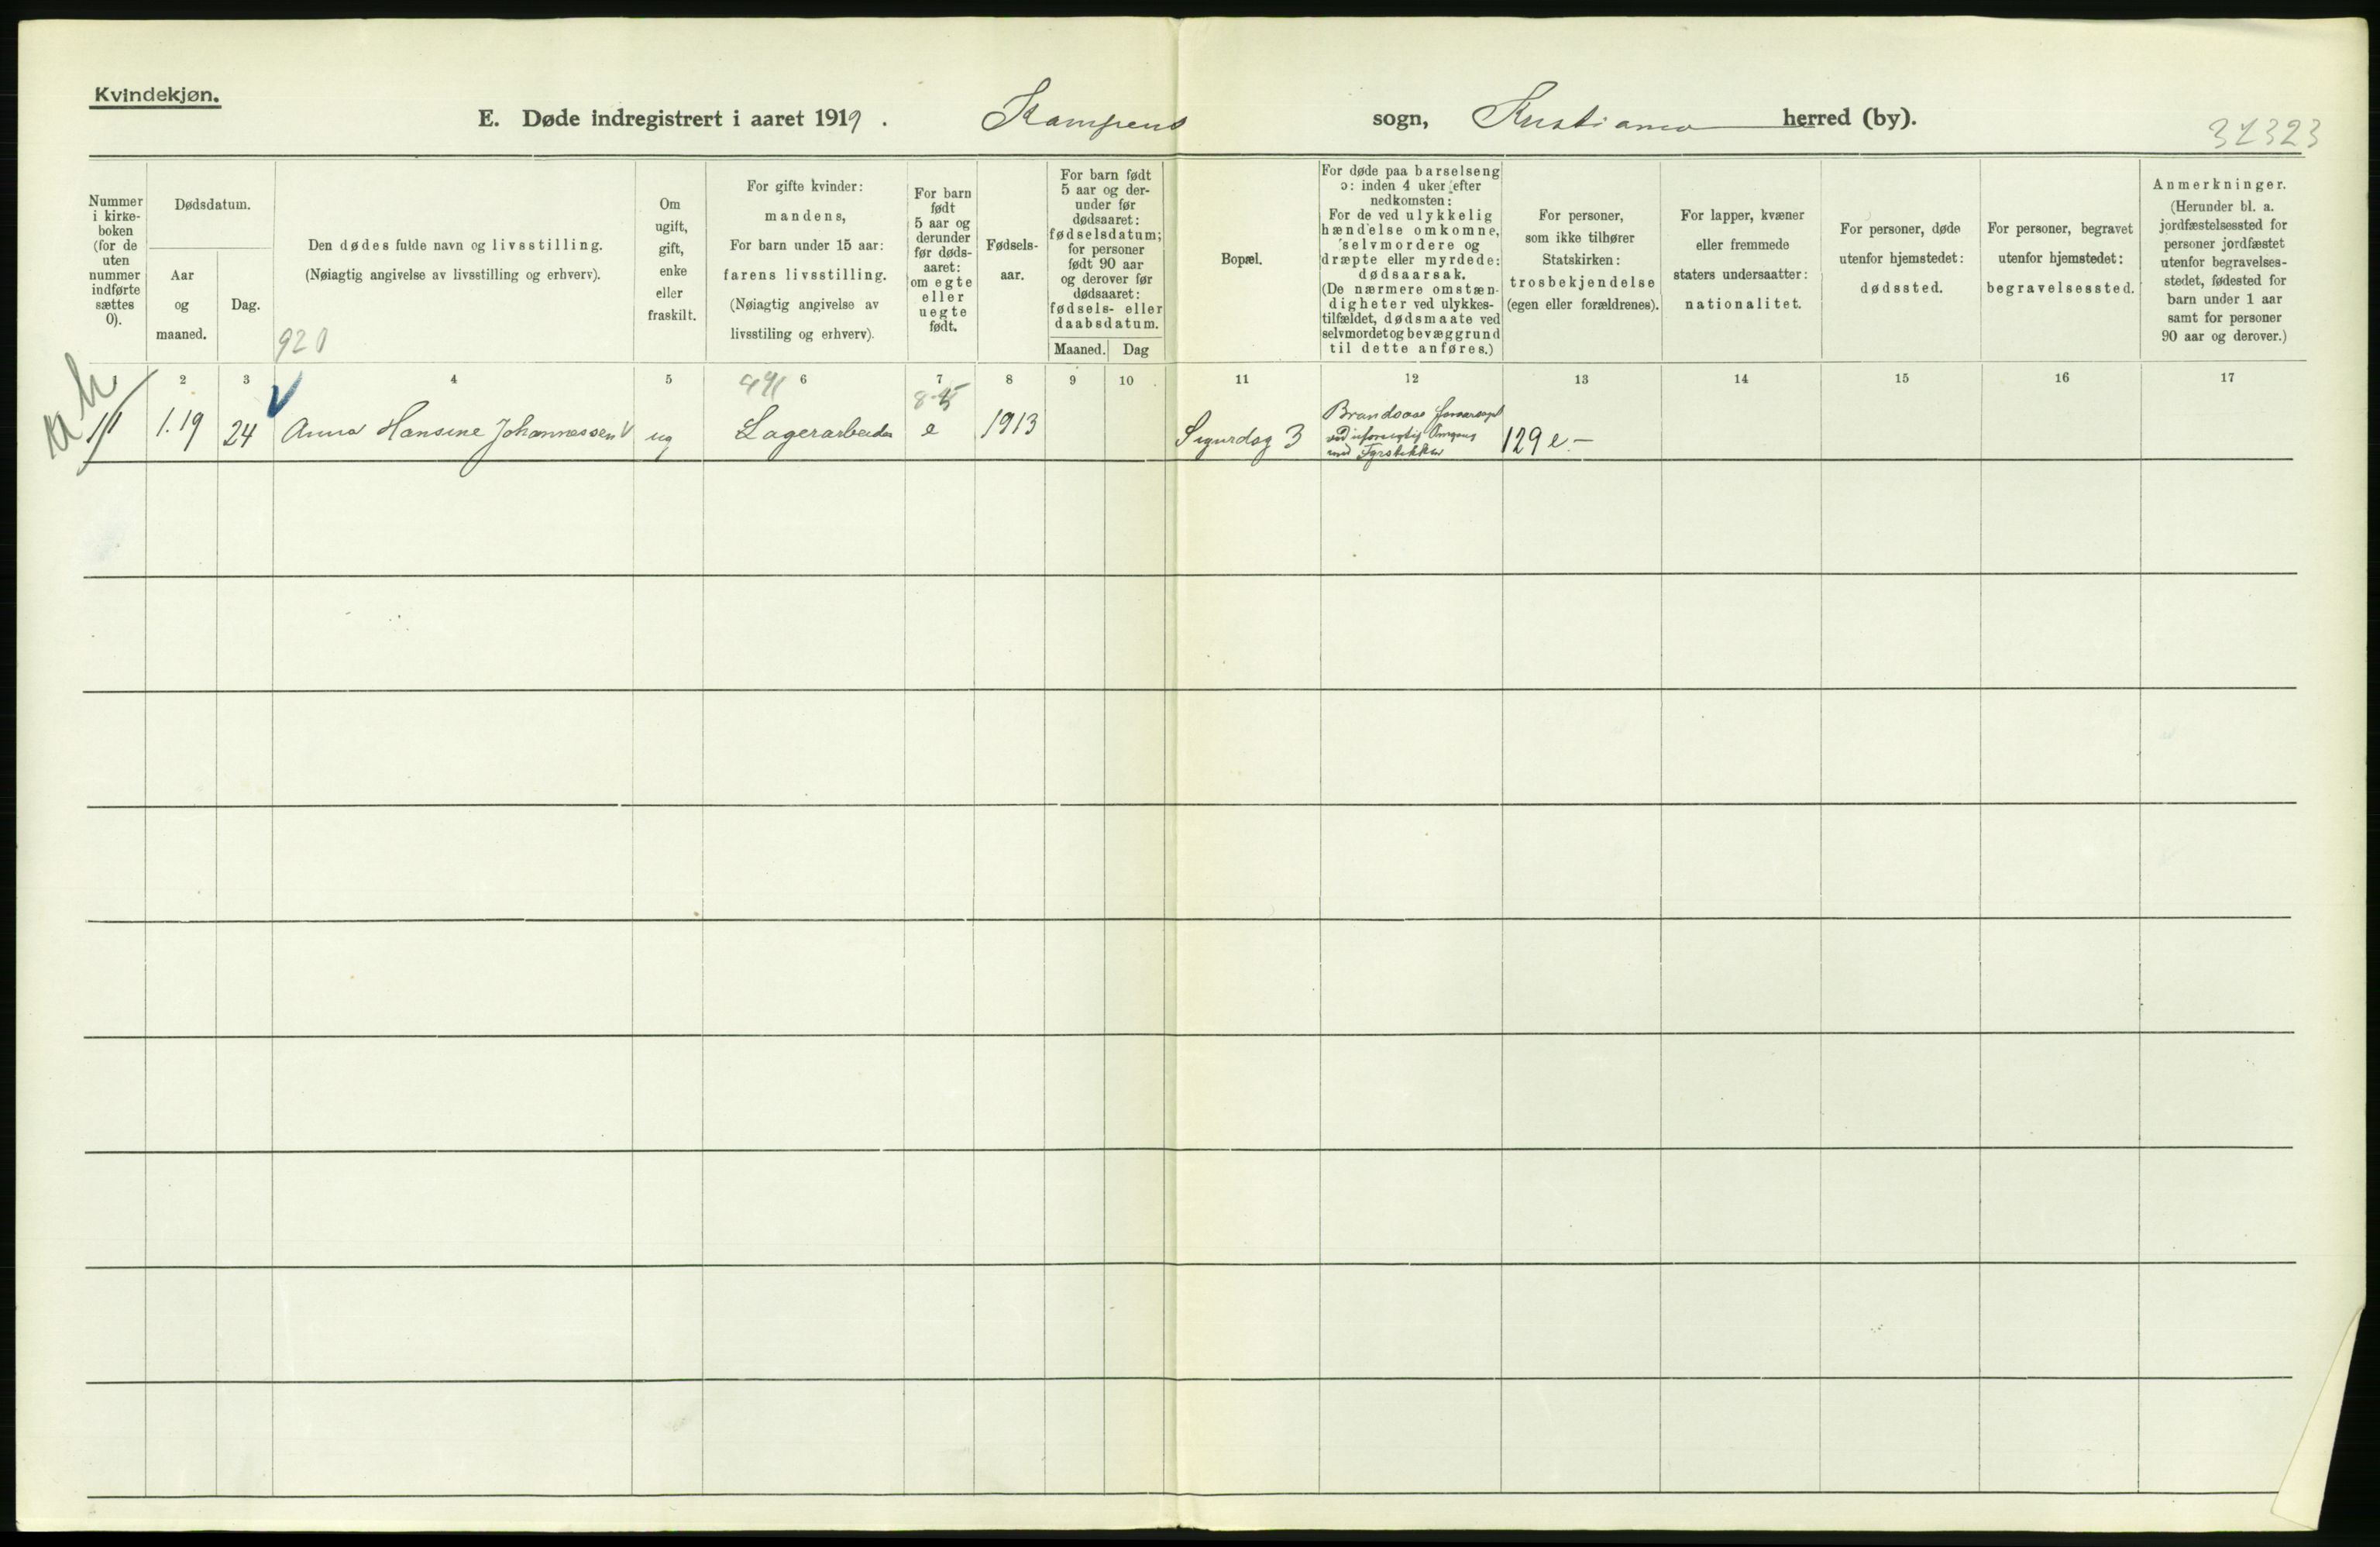 Kvindekjøn.
E. Døde indregistrert i aaret 1919. Kampens sogn, Kristiania herred (by).
32323
Nummer
i kirke-
boken
(for de
uten
nummer
indførte
sættes
0).
Dødsdatum.
Aar
og
maaned.
Dag.
Den dødes fulde navn og livsstilling.
(Nøiagtig angivelse av livsstilling og erhverv).
920
Om
ugift,
gift,
enke
eller
fraskilt.
For gifte kvinder:
mandens,
For barn under 15 aar:
farens livsstilling.
(Nøiagtig angivelse av
livsstiling og erhverv).
For barn
født
5 aar og
derunder
før døds-
aaret:
om egte
eller
uegte
født.
Fødsels-
aar.
For barn født
5 aar og der-
under før
dødsaaret:
fødselsdatum;
for personer
født 90 aar
og derover før
dødsaaret:
fødsels- eller
daabsdatum.
Maaned. Dag
Bopæl.
For døde paa barselseng
ɔ: inden 4 uker efter
nedkomsten:
For de ved ulykkelig
hændelse omkomne,
selvmordere og
dræpte eller myrdede:
dødsaarsak.
(De nærmere omstæn-
digheter ved ulykkes-
tilfældet, dødsmaate ved
selvmordet og bevæggrund
til dette anføres.)
For personer,
som ikke tilhører
Statskirken:
trosbekjendelse
(egen eller forældrenes).
For lapper, kvæner
eller fremmede
staters undersaatter:
nationalitet.
For personer, døde
utenfor hjemstedet:
dødssted.
For personer, begravet
utenfor hjemstedet:
begravelsessted.
Anmerkninger.
(Herunder bl. a.
jordfæstelsessted for
personer jordfæstet
utenfor begravelses-
stedet, fødested for
barn under 1 aar
samt for personer
90 aar og derover.)
2 3 4 5 6 7 8 9 10 11 12 13 14 15 16 17
1.19 24 Anna Hansine Johannessen ug Lagerarbeider e 1913 Sigurdsg 3
Brandsaar foraarsaget
ved uforsigtig Omgang
med Fyrstikker
129 e -